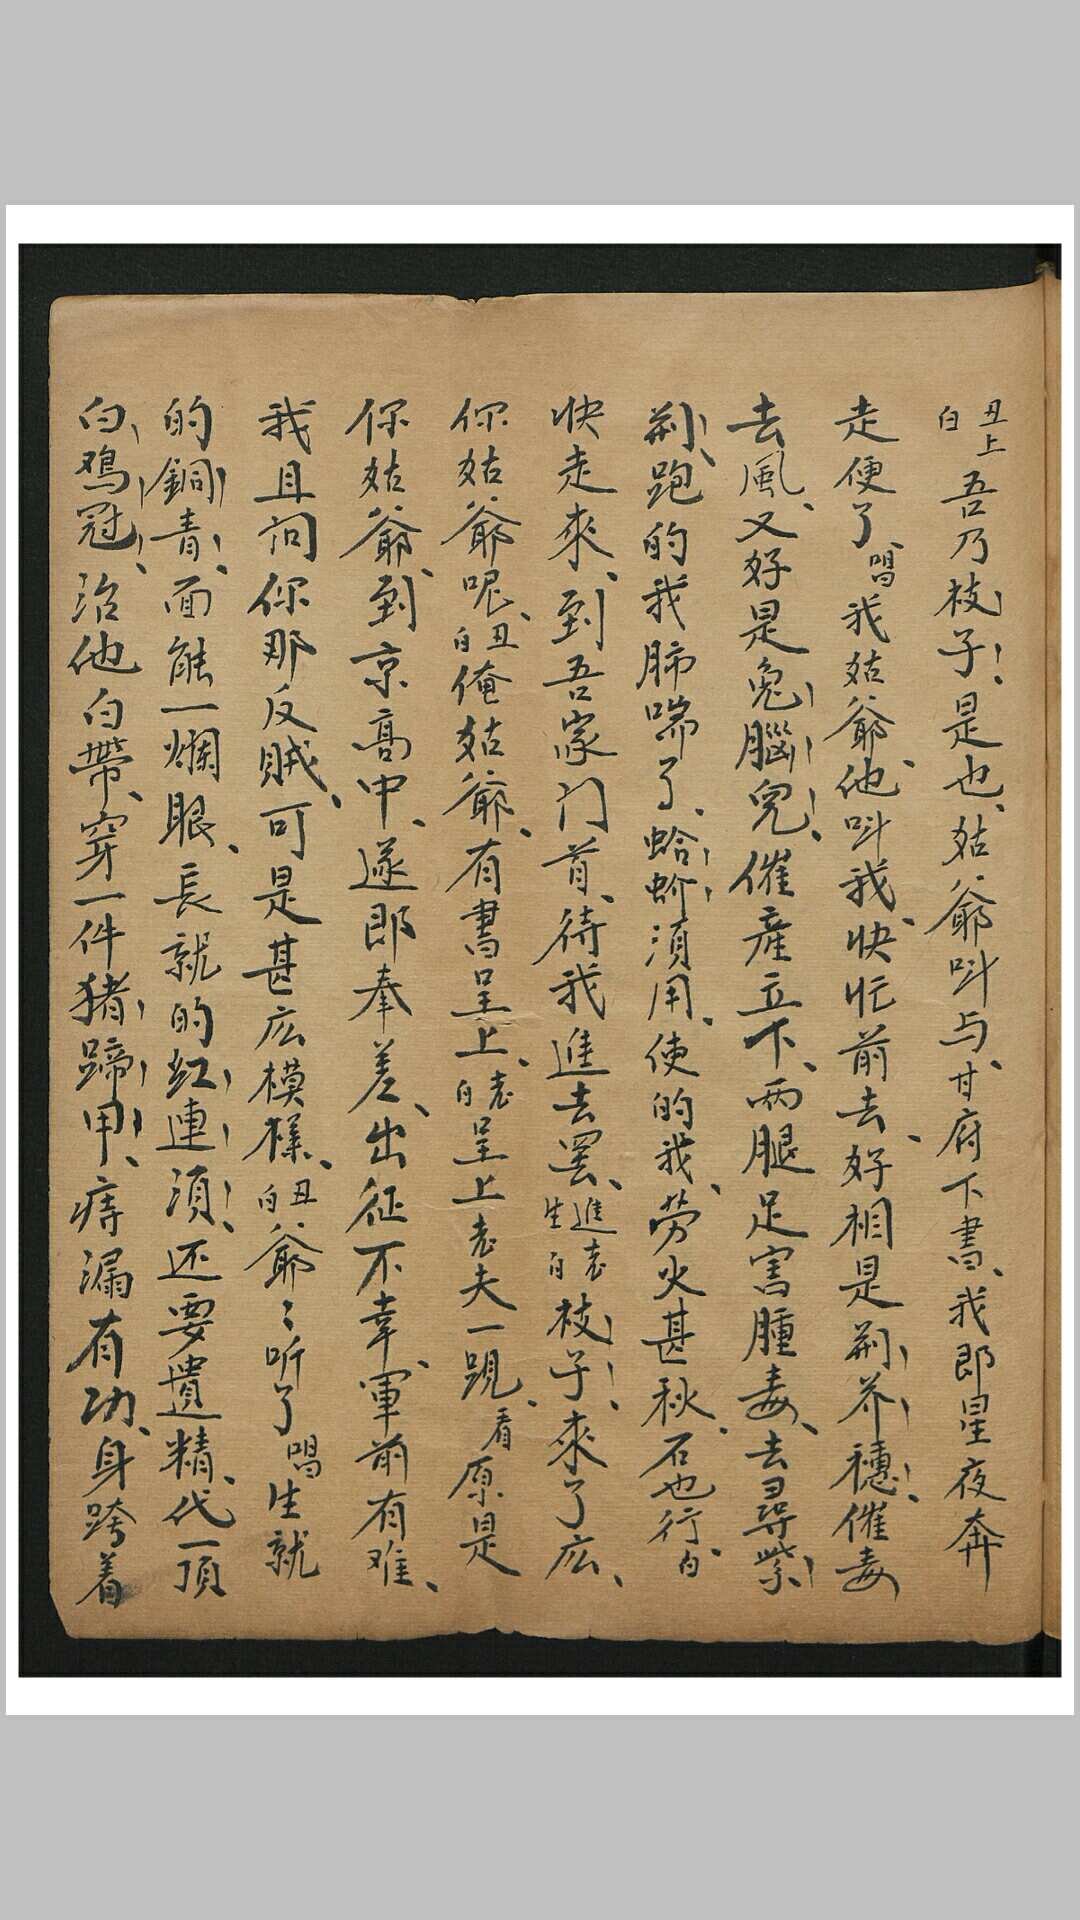 丑上白吾乃枝子是也、姑爺叫与、甘府下書、我即星夜奔
走便了、唱我姑爺、他叫我、快忙前去、好相是荆芥穗、催毒
去風、又好是兔腦兒、催産立下、両腿足害腫毒、去尋紫
荆、跑的我肺喘了、蛤蚧湏用、使的我、劳火甚、秋石也行、白
快走來、到吾家门首、待我進去罢、進老生白枝子來了広、
你姑爺呢、丑白俺姑爺、有書呈上、老白呈上老夫一覌、看原是
你姑爺、到京高中、遂即奉差、出征不幸、軍前有难、
我且问你那反賊、可是甚広模樣、丑白爺〻听了唱生就
的銅青、面能一爛眼、長就的紅連湏、还要遺精、代一頂
白鸡冠、治他白帶、穿一件猪蹄甲、痔漏有功、身跨着